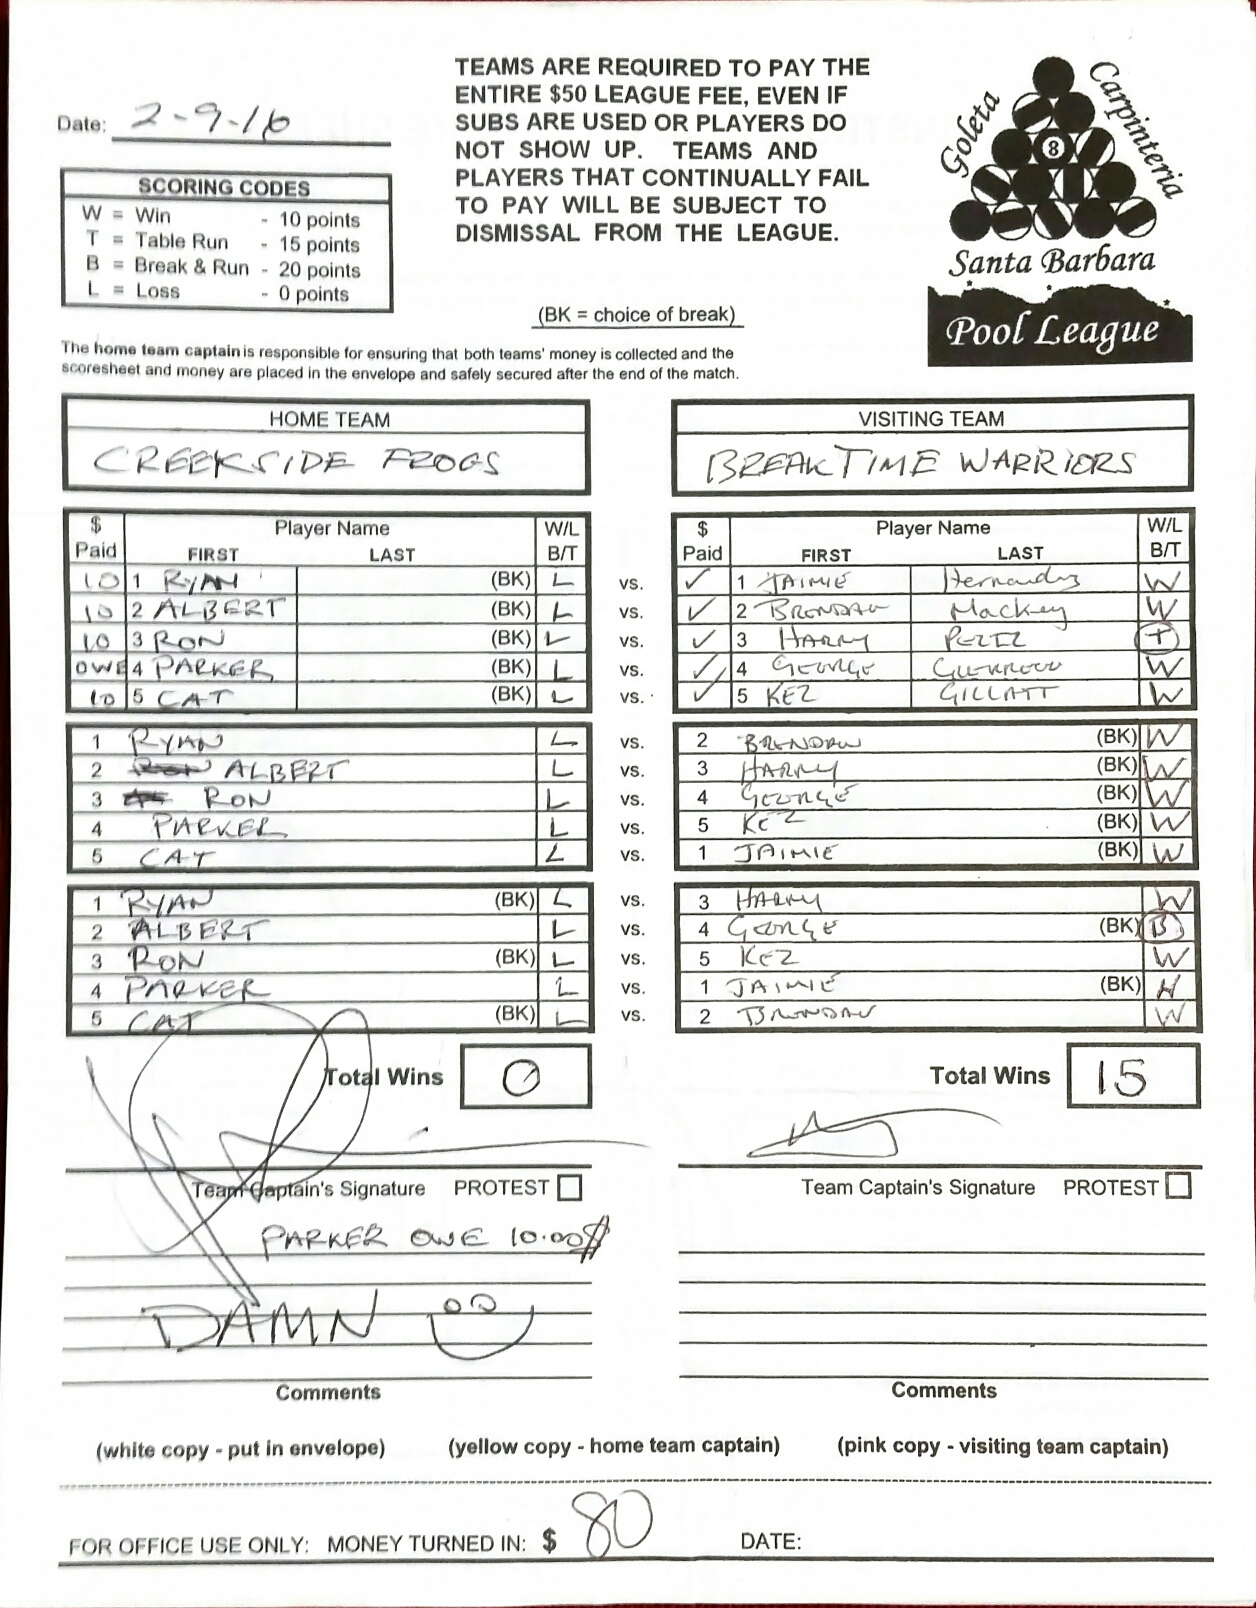 Date: 2-9-16
TEAMS ARE REQUIRED TO PAY THE
ENTIRE $50 LEAGUE FEE, EVEN IF
SUBS ARE USED OR PLAYERS DO
NOT SHOW UP. TEAMS AND
PLAYERS THAT CONTINUALLY FAIL
TO PAY WILL BE SUBJECT TO
DISMISSAL FROM THE LEAGUE.
Goleta
Carpinteria
8
Santa Barbara
Pool League
SCORING CODES
W = Win - 10 points
T = Table Run - 15 points
B = Break & Run - 20 points
L = Loss - 0 points
(BK = choice of break)
The home team captain is responsible for ensuring that both teams' money is collected and the
scoresheet and money are placed in the envelope and safely secured after the end of the match.
HOME TEAM VISITING TEAM
CREEKSIDE FROGS BREAKTIME WARRIORS
$ Player Name W/L $ Player Name W/L
Paid FIRST LAST B/T Paid FIRST LAST B/T
10 1 RYAN (BK) L vs. ✓ 1 JAIMIE Hernandez W
10 2 ALBERT (BK) L vs. ✓ 2 BRENDAN Mackey W
10 3 RON (BK) L vs. ✓ 3 HARRY PEREZ T
OWE 4 PARKER (BK) L vs. ✓ 4 GEORGE GUERRERO W
10 5 CAT (BK) L vs. ✓ 5 KEZ GILLATT W
1 RYAN L vs. 2 BRENDAN (BK) W
2 ALBERT L vs. 3 HARRY (BK) W
3 RON L vs. 4 GEORGE (BK) W
4 PARKER L vs. 5 KEZ (BK) W
5 CAT L vs. 1 JAIMIE (BK) W
1 RYAN (BK) L vs. 3 HARRY W
2 ALBERT L vs. 4 GEORGE (BK) B
3 RON (BK) L vs. 5 KEZ W
4 PARKER L vs. 1 JAIMIE (BK) W
5 CAT (BK) L vs. 2 BRENDAN W
Total Wins 0 Total Wins 15
Team Captain's Signature PROTEST Team Captain's Signature PROTEST
PARKER OWE 10.00$
DAMN
Comments Comments
(white copy - put in envelope) (yellow copy - home team captain) (pink copy - visiting team captain)
FOR OFFICE USE ONLY: MONEY TURNED IN: $ 80 DATE: